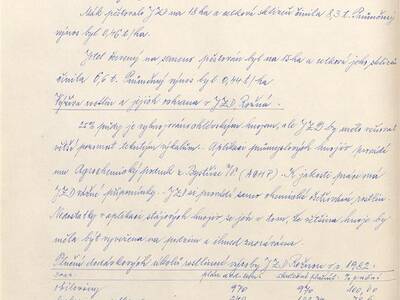 Mák pěstovalo JZD na 18 ha a celková sklizeň činila 8,3 t. Průměrný
výnos byl 0,46 t/ha.
Jetel červený na semeno pěstován byl na 15 ha a celková jeho sklizeň
činila 6,6 t. Průměrný výnos byl 0,44 t/ha.
Výživa rostlin a jejich ochrana v JZD Rožná.
25% půdy je vyhnojováno chlévským hnojem, ale JZD by mělo věnovat
větší pozornost tekutým výkalům. Aplikaci průmyslových hnojiv provádí
mu Agrochemický podnik z Bystřice n/P. K jakosti práce má
JZD vážné připomínky. JZD si provádí samo chemické ošetřování rostlin.
Nedostatky v aplikaci stájových hnojiv se jeví v tom, že většina hnoje by
měla být vyvezena na podzim a ihned zaorávána.
Plnění dodávkových úkolů rostlinné výroby JZD Rožná v r. 1982.
plán skutečnost % plnění
obiloviny 970 970 100,00